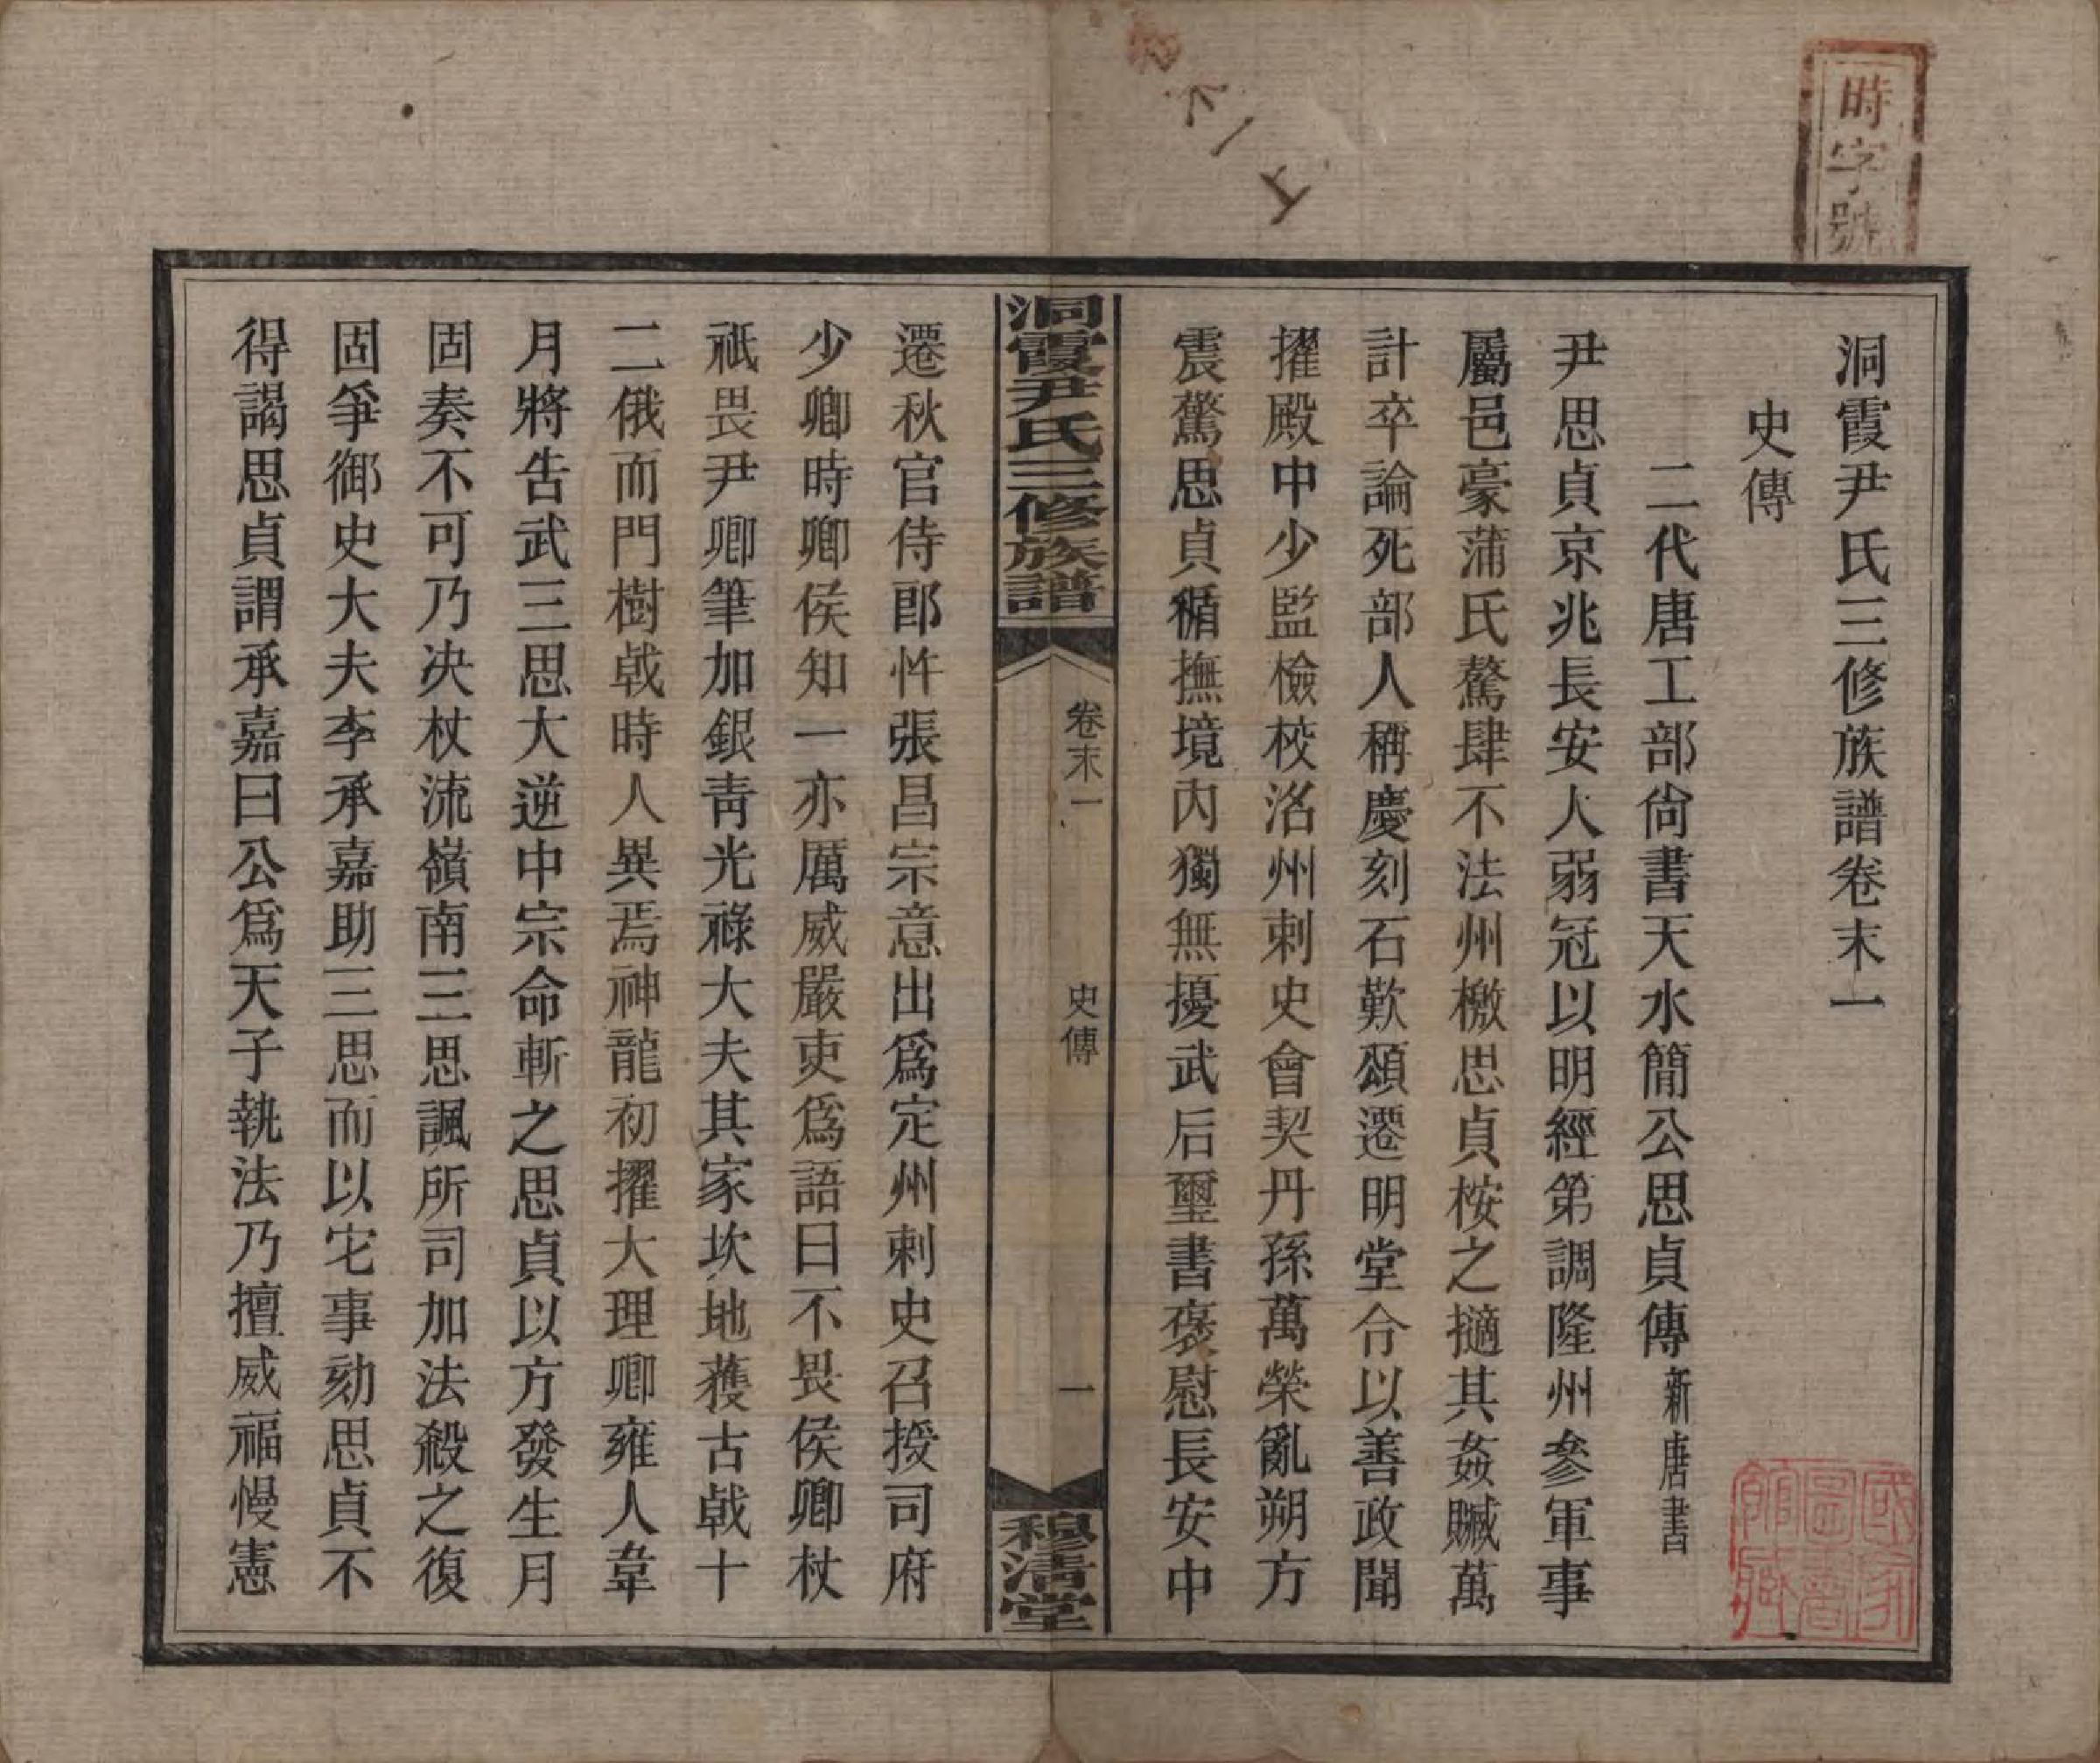 時字號
洞霞尹氏三修族譜卷末一
史傳
二代唐工部尙書天水簡公思貞傳 新唐書
尹思貞京兆長安人弱冠以明經第調隆州參軍事
屬邑豪蒲氏驁肆不法州檄思貞桉之擿其姦贓萬
計卒論死部人稱慶刻石歎頌遷明堂令以善政聞
擢殿中少監檢校洺州刺史會契丹孫萬榮亂朔方
震驚思貞循撫境內獨無擾武后璽書褒慰長安中
洞霞尹氏三修族譜
卷末一
史傳
一
穆清堂
遷秋官侍郎忤張昌宗意出爲定州刺史召授司府
少卿時卿侯知一亦厲威嚴吏爲語曰不畏侯卿杖
祇畏尹卿筆加銀靑光祿大夫其家坎地獲古戟十
二俄而門樹戟時人異焉神龍初擢大理卿雍人韋
月將吿武三思大逆中宗命斬之思貞以方發生月
固奏不可乃决杖流嶺南三思諷所司加法殺之復
固爭御史大夫李承嘉助三思而以它事劾思貞不
得謁思貞謂承嘉曰公爲天子執法乃擅威福慢憲
國家圖書館藏